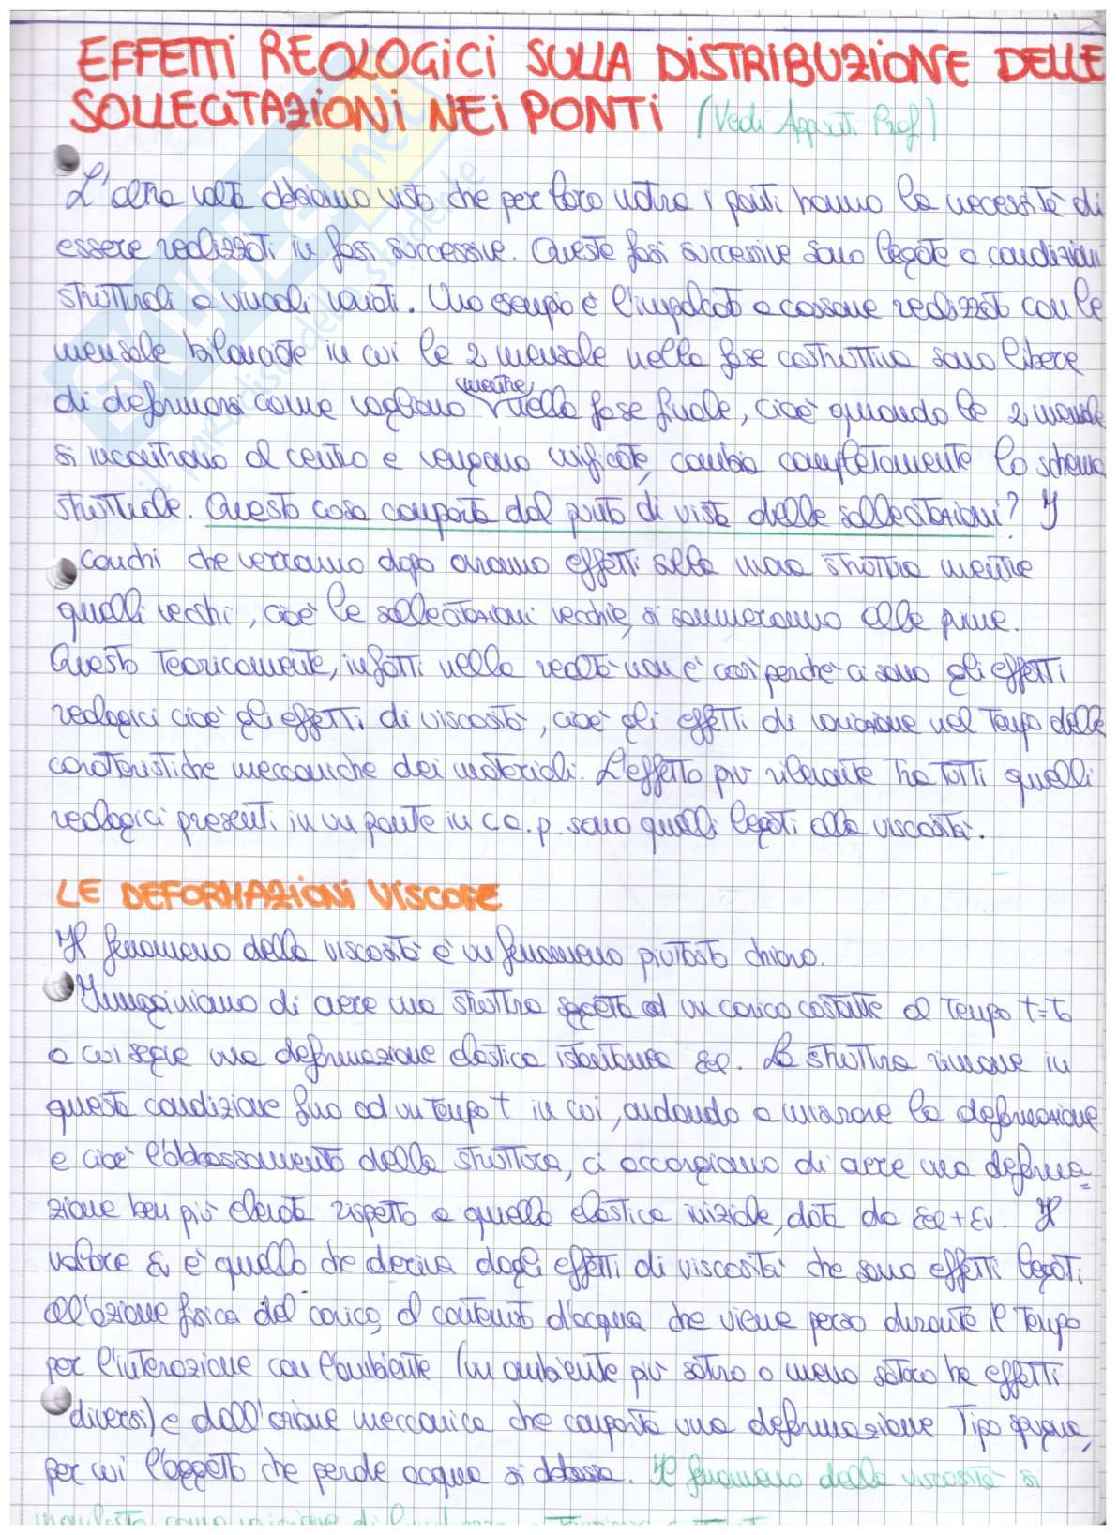 EFFETTI REOLOGICI SULLA DISTRIBUZIONE DELLE
SOLLECITAZIONI NEI PONTI (Vedi Appunti Prof)
L'altra volta abbiamo visto che per loro natura i ponti hanno la necessità di
essere realizzati in fasi successive. Queste fasi successive sono legate a condizioni
strutturali o vincoli variati. Uno esempio è l'impalcato a cassone realizzato con le
mensole bilanciate in cui le 2 mensole nella fase costruttiva sono libere
di deformarsi come vogliono mentre nella fase finale, cioè quando le 2 mensole
si incontrano al centro e vengono unificate, cambia completamente lo schema
strutturale. Questo cosa comporta dal punto di vista delle sollecitazioni? I
carichi che verranno dopo avranno effetti sulla nuova struttura mentre
quelli vecchi, cioè le sollecitazioni vecchie, si sommeranno alle prime.
Questo teoricamente, infatti nella realtà non è così perché ci sono gli effetti
reologici cioè gli effetti di viscosità, cioè gli effetti di variazione nel tempo delle
caratteristiche meccaniche dei materiali. L'effetto più rilevante tra tutti quelli
reologici presenti in un ponte in c.a.p. sono quelli legati alla viscosità.
LE DEFORMAZIONI VISCOSE
Il fenomeno della viscosità è un fenomeno piuttosto chiaro.
Immaginiamo di avere una struttura soggetta ad un carico costante al tempo t=t0
a cui segue una deformazione elastica istantanea εel. La struttura rimane in
questa condizione fino ad un tempo t in cui, andando a misurare la deformazione
e cioè l'abbassamento della struttura, ci accorgiamo di avere una deforma=
zione ben più elevata rispetto a quella elastica iniziale, data da εel+εv. Il
valore εv è quello che deriva dagli effetti di viscosità che sono effetti legati
all'azione fisica del carico, al contenuto d'acqua che viene perso durante il tempo
per l'interazione con l'ambiente (un ambiente più saturo o meno saturo ha effetti
diversi) e dall'azione meccanica che comporta una deformazione tipo spugna,
per cui l'oggetto che perde acqua si Il fenomeno della viscosità si